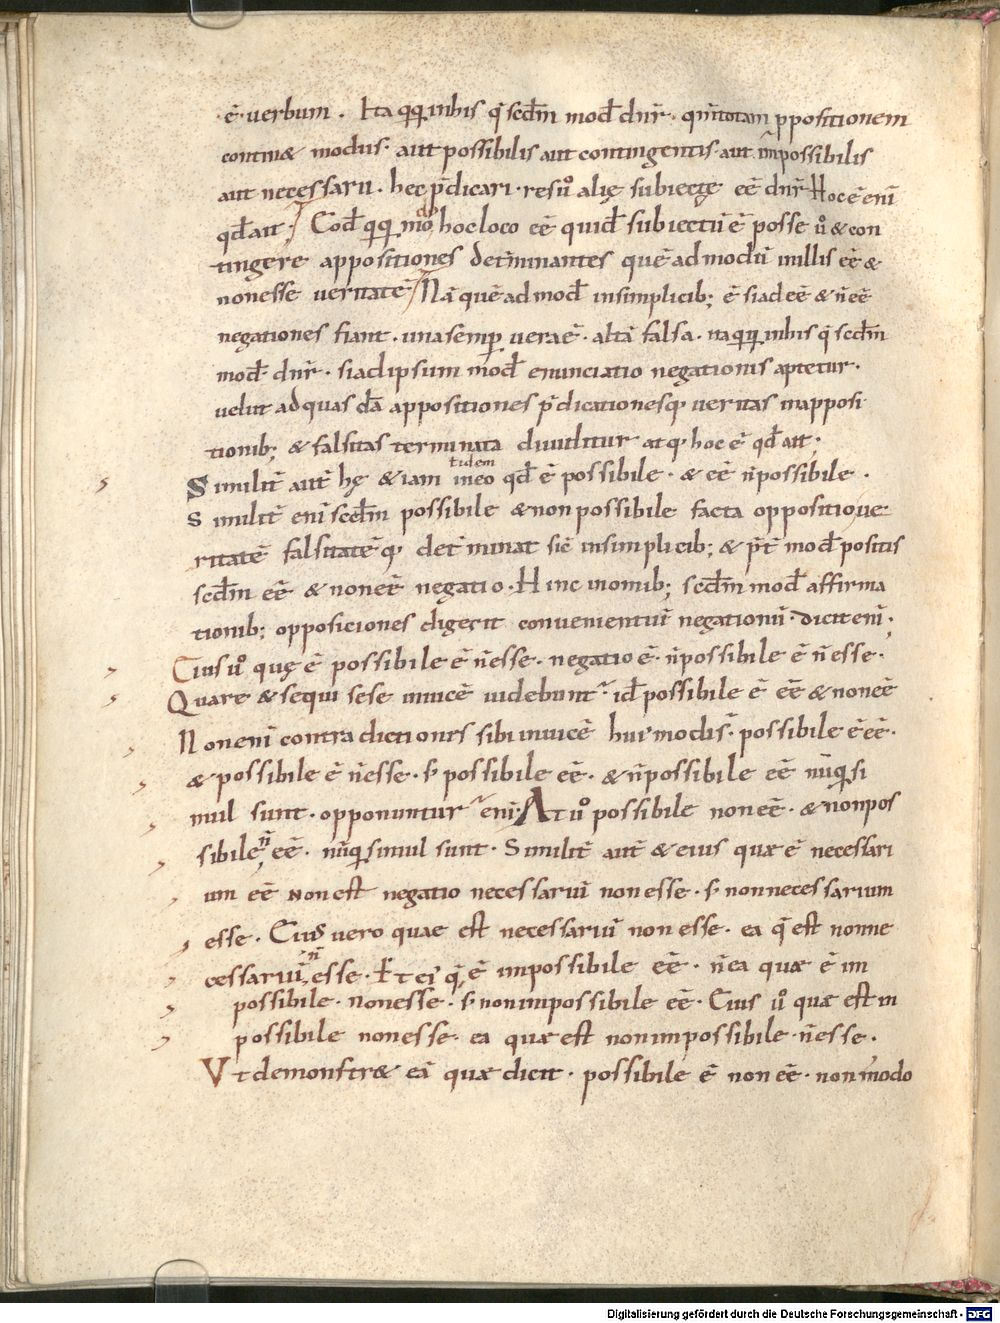 ·ē· verbum . Ita q̄q; inhis q̄ scd̄m mod̄ dn̄r · qm̄ totam ppositionem
continet modus · aut possibilis aut contingentis · aut īmpossibilis
aut necessarii . hec p̄dicari · res ůo alię subiectę eē dn̄r Hoc ē eni
qd̄ ait ·; hoc loco eē quid̄ subiectū ē posse ůo & con
tingere appositiones det̄minantes quēadmodū inillis eē &
nonesse veritatē Nā quēadmod̄ insimplicib; ē siad eē & n̄ eē
negationes fiant · una semp vera ē · alt̄a falsa · ita q̄q; inhis q̄ scd̄m
mod̄ · dn̄r · siad ipsum mod̄ enunciatio negationis aptetur ·
velut ad quas dā appositiones p̄dicationesq; veritas inapposi
tionib; & falsitas terminata dividitur atq; hoc ē qd̄ ait ;
Similit̄ aut̄ hę & iam ineo qd̄ ē possibile · & eē n̄ possibile .
Similit̄ eni scd̄m possibile & non possibile facta oppositio ve
ritatē falsitatēq; det̄minat sic̄ insimplicib; & p̄t mod̄ positis
scd̄m eē & non eē negatio · Hinc inomib; scd̄m mod̄ affirma
tionib; opposiciones digerit convenientiū negationū · dicit eni ·
Eius ůo quę ē possibile ē n̄ esse · negatio ē · n̄ possibile ē n̄ esse ·
Quare & sequi sese invicē videbunt̄ · id̄ possibile ē eē & non eē
Non eni contradictiones sibi invicē huiusmodi · possibile ē eē ·
& possibile ē n̄ esse · s; possibile eē · & n̄ possibile eē nūq̄ si
mul sunt · opponuntur eni · At ůo possibile non eē · & non pos
sibile n̄ eē · nūq̄ simul sunt · Similit̄ aut̄ & eius quæ ē necessari
um eē non est negatio necessariū non esse · s; non necessarium
esse · Eius vero quae est necessariū non esse · ea q̄ est non ne
cessariū n̄ esse · Et ei q̄ ē impossibile eē · n̄ ea quæ ē im
possibile · non esse · s; non impossibile eē · Eius ůo quæ est in
possibile non esse · ea quæ est non impossibile · n̄ esse ·
Vt demonstræt eā quæ dicit · possibile ē non eē · non modo
Digitalisierung gefördert durch die Deutsche Forschungsgemeinschaft - DFG